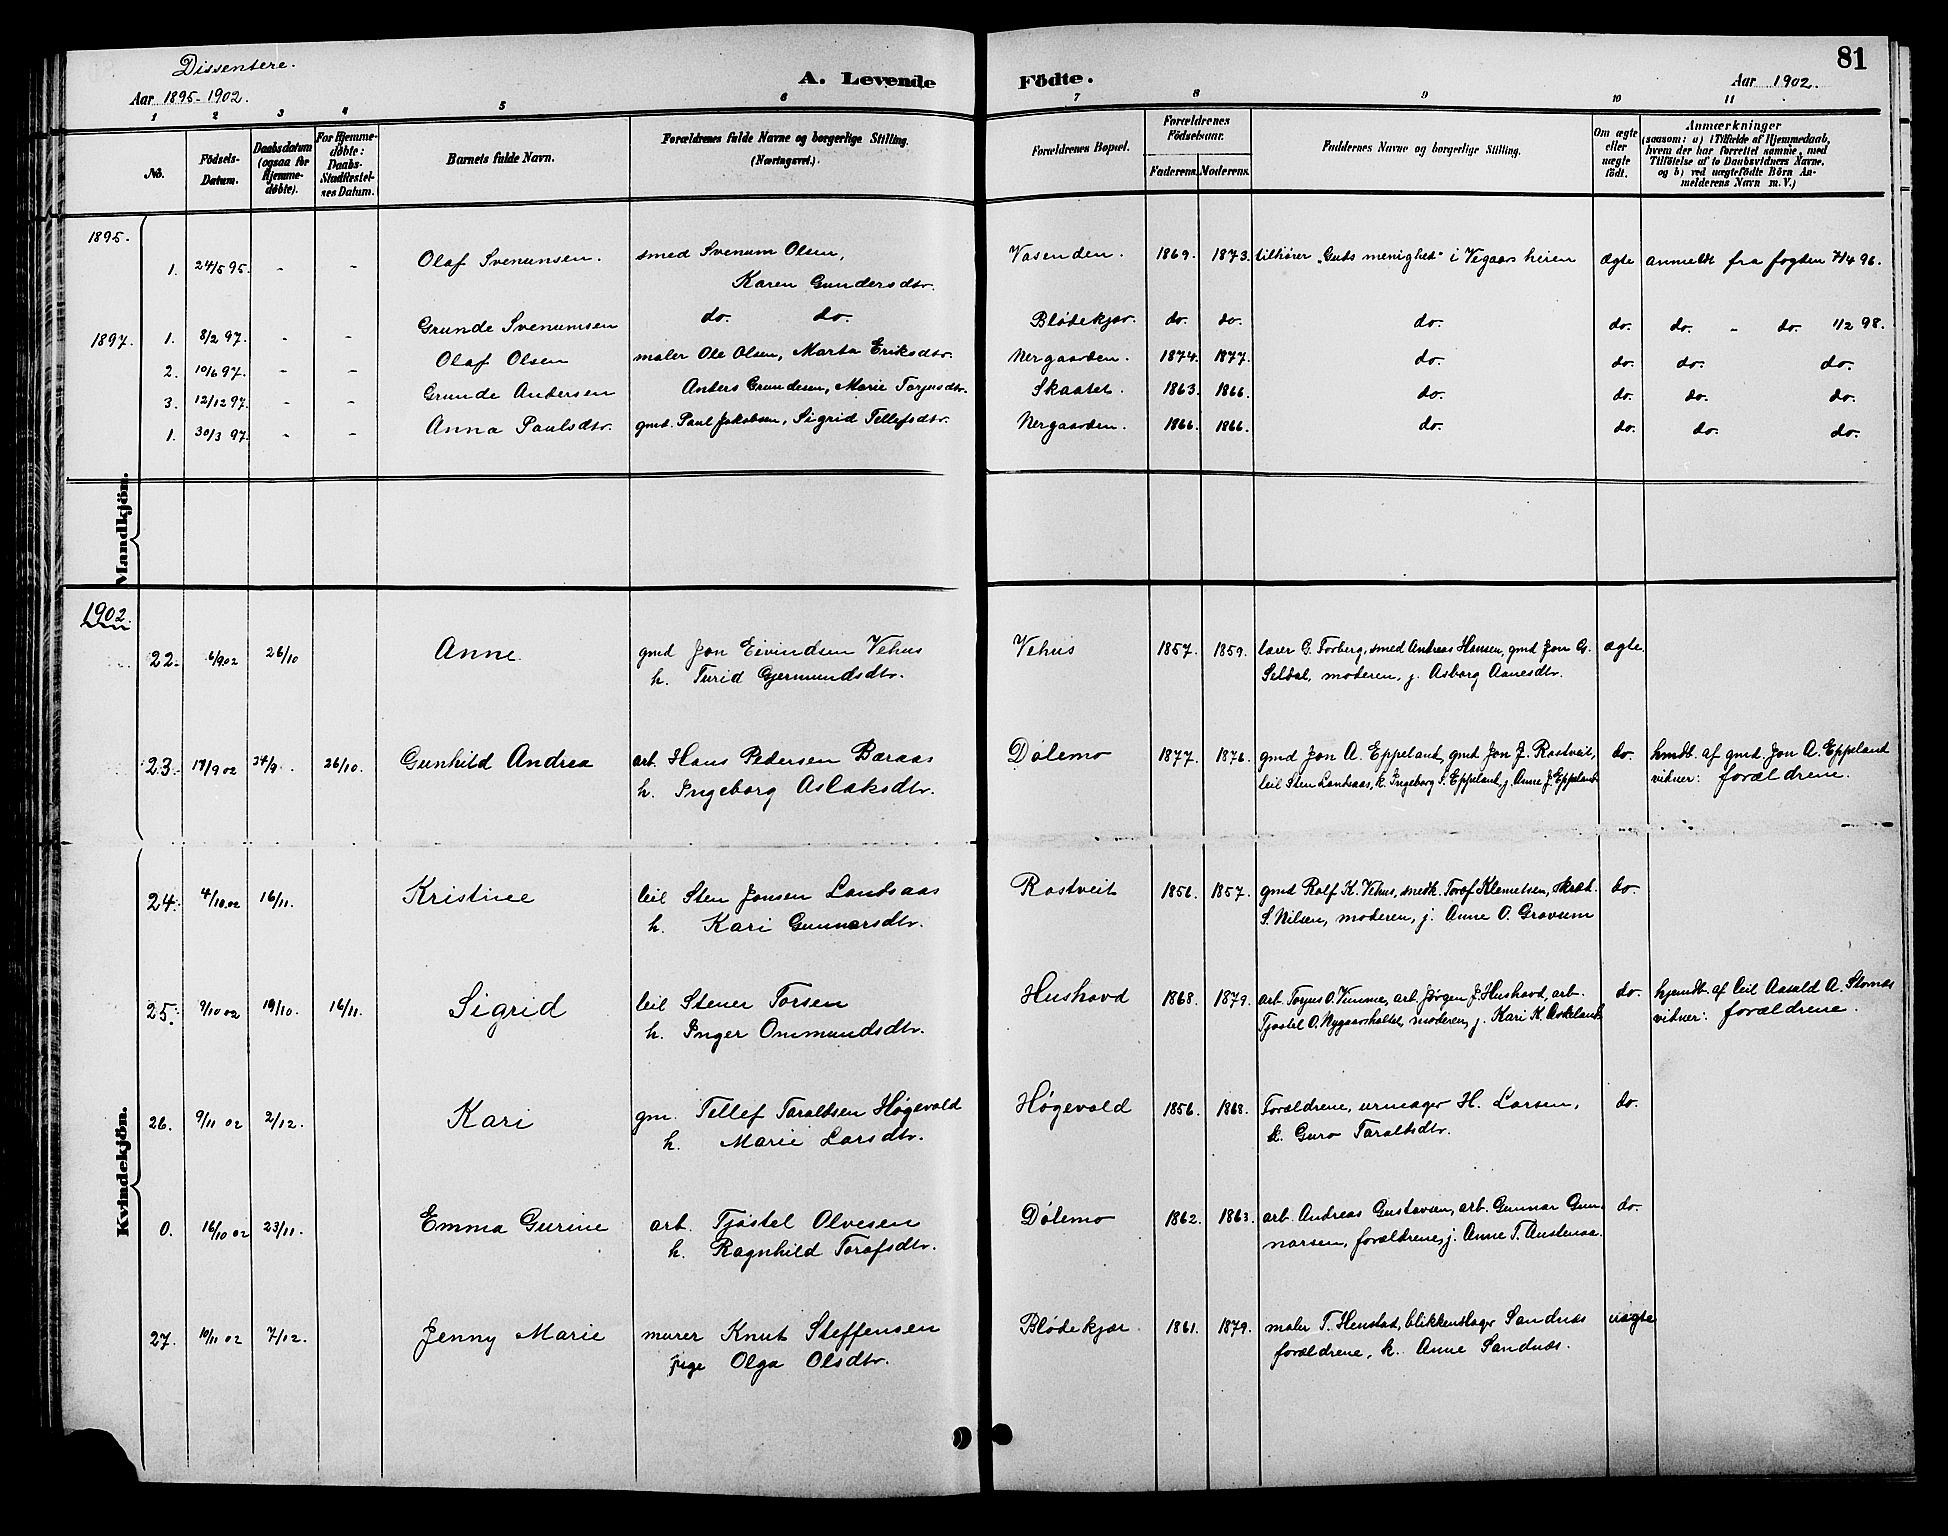 Dissentere.
81
Aar 1895-1902.
A. Levende Födte.
Aar 1902.
1 2 3 4 5 6 7 8 9 10 11
No. Födsels-Datum. Daabsdatum (ogsaa for Hjemme-døbte). For Hjemme-døbte: Daabs-Stadfæstel-ses Datum. Barnets fulde Navn. Forældrenes fulde Navne og borgerlige Stilling. (Næringsvei.) Forældrenes Bopæl. Forældrenes Fødselsaar. Faderens. Moderens. Faddernes Navne og borgerlige Stilling. Om ægte eller uægte født. Anmærkninger (saasom: a) i Tilfælde af Hjemmedaab, hvem der har forrettet samme, med Tilføielse af to Daabsvidners Navne, og b) ved uægtefödte Börn An-melderens Navn m. V.)
1895.
1. 24/5 95. - - Olaf Svenumsen. smed Svenum Olsen, Vasenden. 1869. 1873. tilhører „Guds menighed" i Vegaarsheien ægte anmeldt fra fogden 7/4 96.
Karen Gundersdtr.
1897. 1. 8/2 97. - - Grunde Svenumsen do. do. Blødekjær. do. do. do. do. do. - do. 1/2 98.
2. 10/6 97. - - Olaf Olsen maler Ole Olsen, Marta Eriksdtr. Nergaarden. 1874. 1877. do. do. do. do.
3. 12/12 97. - - Grunde Andersen Anders Grundesen, Marie Torjusdtr. Skaatet. 1863. 1866. do. do. do. do.
1. 30/3 97. - - Anna Paulsdtr. gmd. Paul Jakobsen, Sigrid Tellefsdtr. Nergaarden. 1866. 1866. do. do. do. do.
Mandkjön.
1902
22. 6/9 02 26/10 Anne gmd Jon Eivindsen Vehus Vehus 1857. 1859. lærer G. Forberg, smed Andreas Hansen, gmd Jon G. ægte
h. Turid Gjermundsdtr. Seldal, moderen, j. Asborg Aanesdtr.
23. 17/9 02 24/9. 26/10. Gunhild Andrea arb. Hans Pedersen Baraas Dølemo 1877. 1876. gmd Jon A. Eppeland, gmd Jon J. Rostveit, do. hmdb. af gmd. Jon A. Eppeland
h. Ingeborg Aslaksdtr. leil Sten Landsaas, k. Ingeborg S. Eppeland, j. Anne J. Eppeland vidner: forældrene.
24. 4/10 02 16/11. Kristine leil Sten Jonsen Landsaas Rostveit 1856. 1857. gmd Rolf K. Vehus, smedk. Toraf Klemetsen, skræd. do.
h. Kari Gunnarsdtr. S. Nilsen, moderen, j. Anne O. Gravum
25. 9/10 02 19/10. 16/11. Sigrid leil Stener Torsen Hushovd 1868. 1879. arb. Torjus O. Vimme, arb. Jørgen J. Hushovd, arb. do. hjemdb. af leil Aasuld A.
h. Inger Ommundsdtr. Tjøstel O. Nygaarsholtet, moderen, j. Kari K. Askeland vidner: forældrene.
26. 9/11 02 2/12. Kari gm. Tellef Taraldsen Høgevold Høgevold 1856. 1868. Forældrene, urmager H. Larsen, do.
h. Marie Larsdtr. k. Guro Taraldsdtr.
0. 16/10 02 23/11. Emma Gurine arb. Tjøstel Alvesen Dølemo 1862. 1863. arb. Andreas Gustavsen, arb. Gunnar Gun- do.
h. Ragnhild Torafsdtr. narsen, forældrene, j. Anne T. Austenaa.
27. 10/11 02 7/12. Jenny Marie murer Knut Steffensen Blødekjær 1861. 1879. maler T. Henstad, blikkenslager Sandnæs uægte
pige Olga Olsdtr. forældrene, k. Anne Sandnæs.
Kvindekjön.